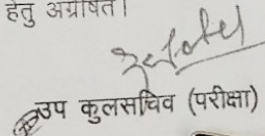 हेतु अग्रेषित।
उप कुलसचिव (परीक्षा)